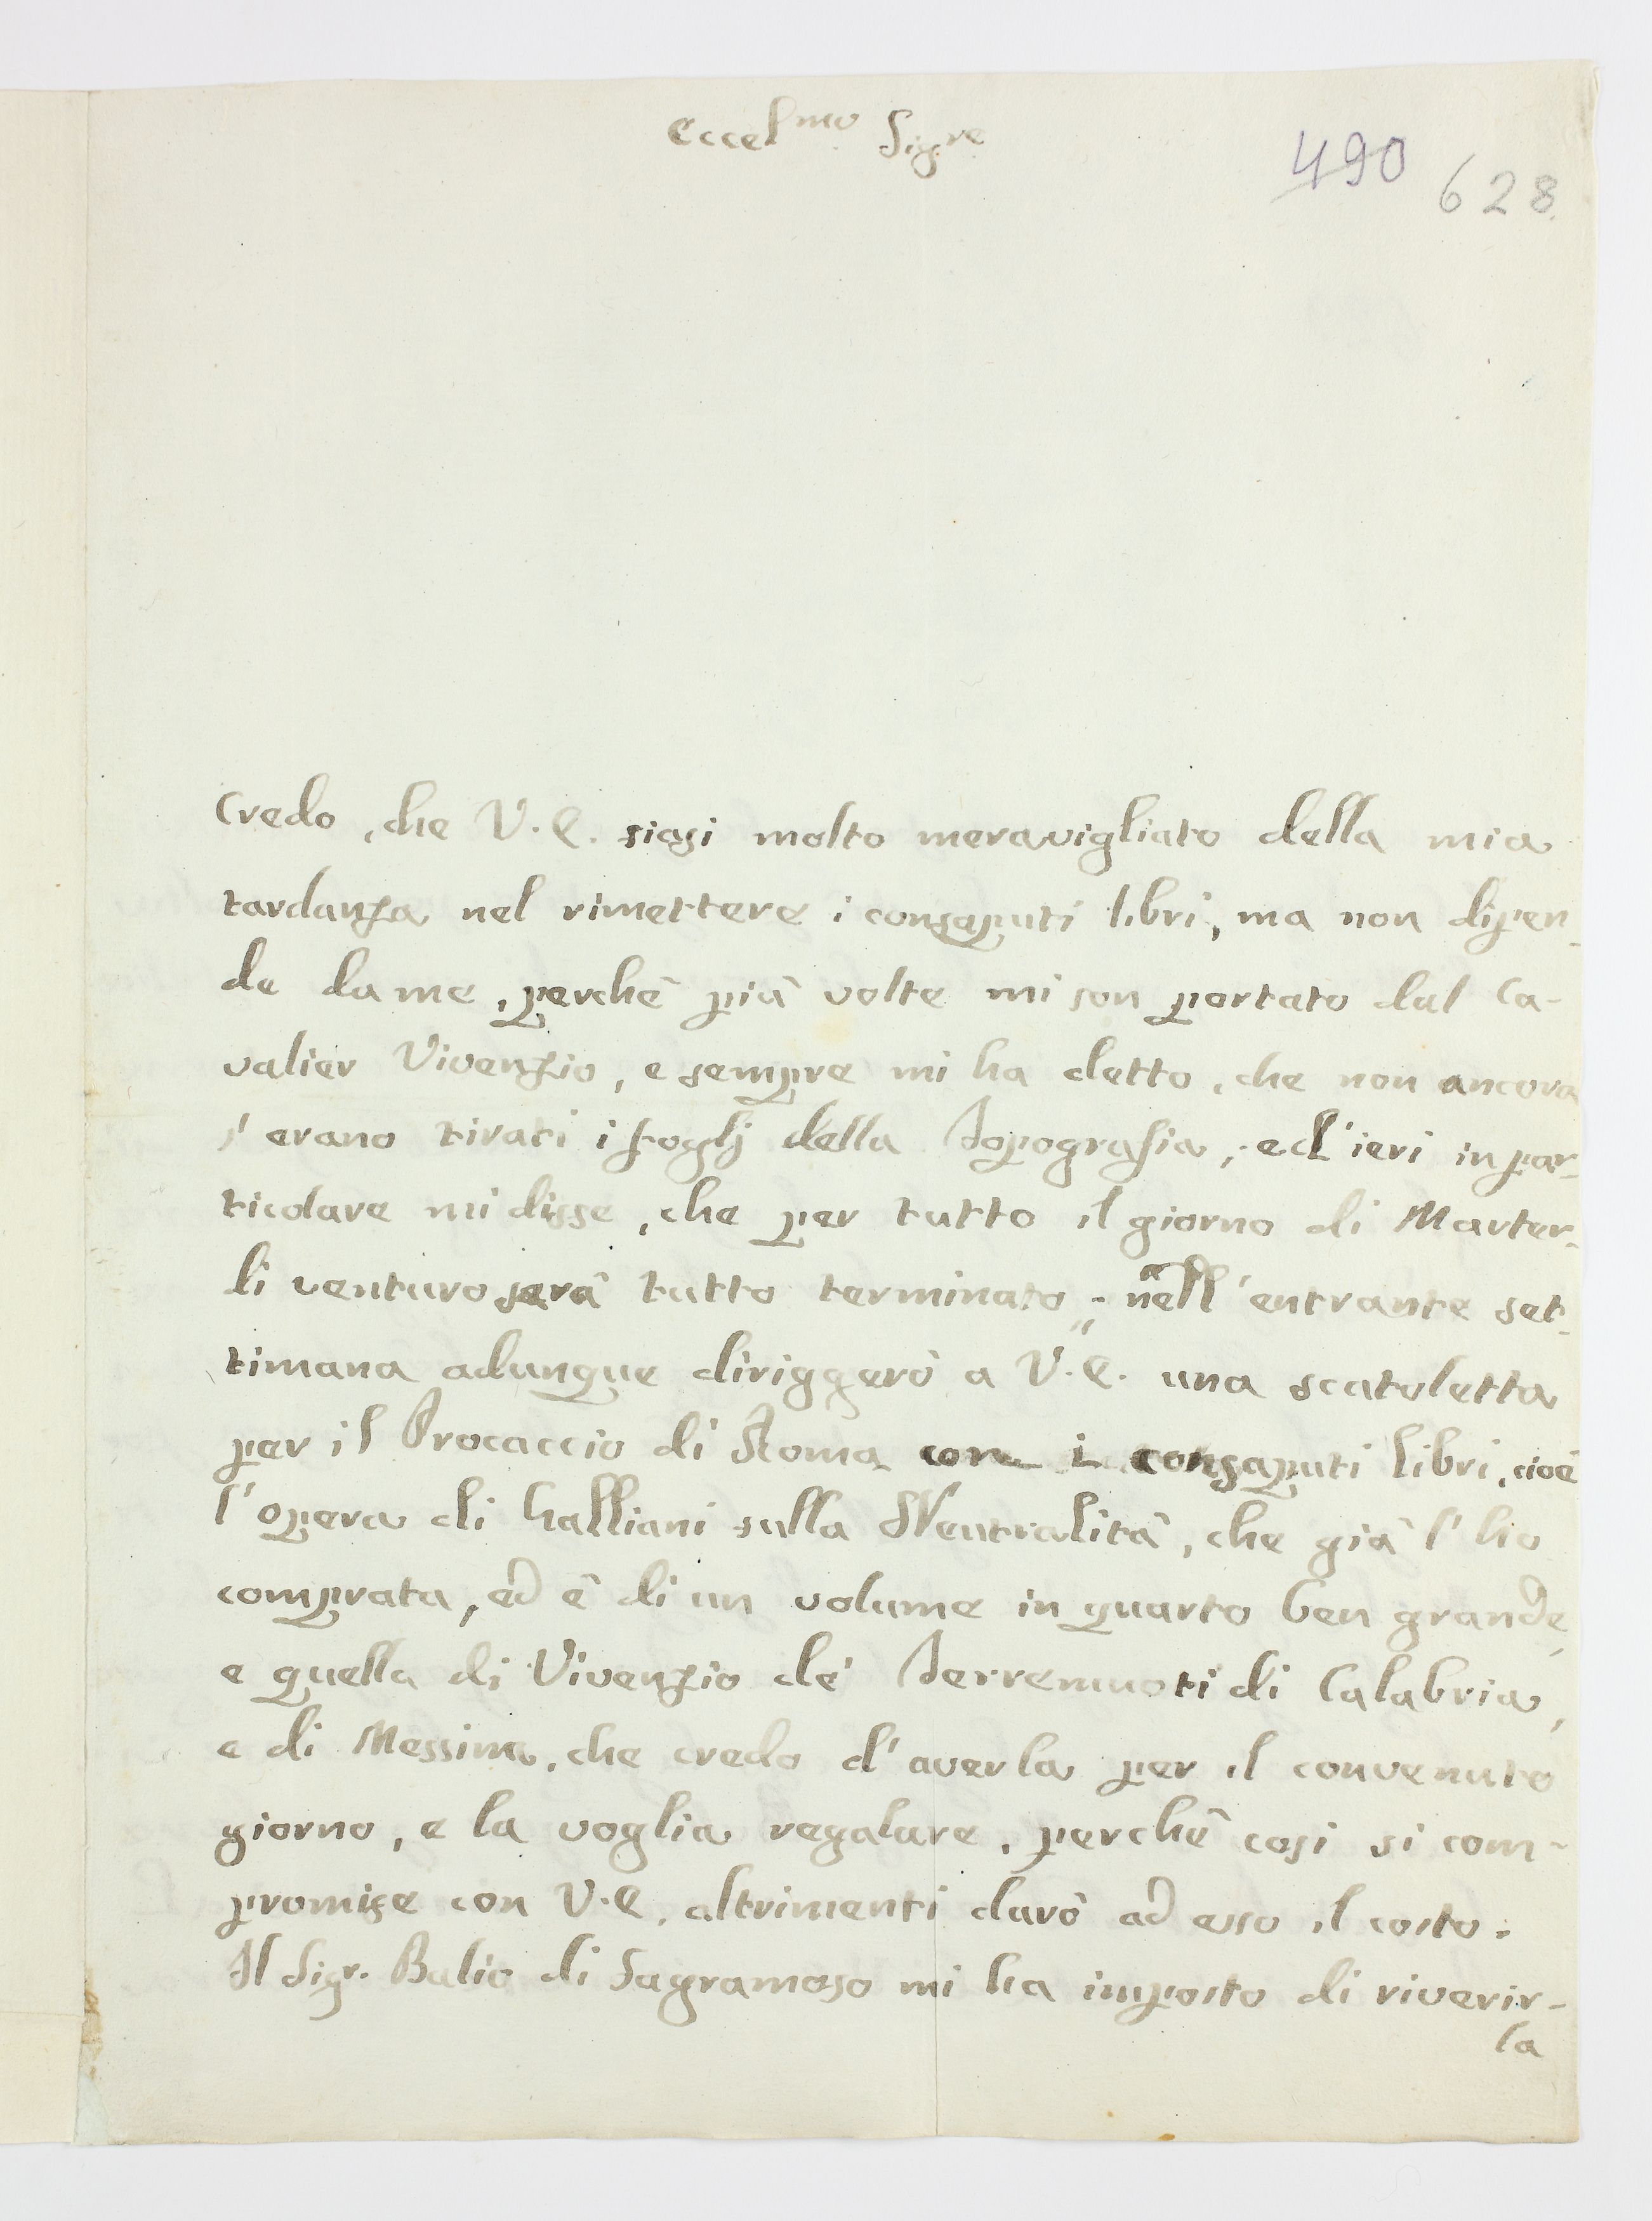 Eccel.mo Sig.re
490 628.
Credo, che V. E. siasi molto meravigliato della mia
tardanza nel rimettere i consaputi libri, ma non dipen-
de da me, perchê più volte mi son portato dal Ca-
valier Vivenzio, e sempre mi ha detto, che non ancora
s'erano tirati i foglj della Topografia, ed'ieri in par-
ticolare mi disse, che per tutto il giorno di Marter-
dì venturo serâ tutto terminato; nell'entrante set-
timana adunque diriggerò a V. E. una scatoletta
per il Procaccio di Roma con i consaputi libri, cioê
l'opera di Galliani sulla Neutralitâ, che giâ l'ho
comprata, ed ê di un volume in quarto ben grande,
e quella di Vivenzio de' Terremuoti di Calabria,
e di Messina, che credo d'averla per il convenuto
giorno, e la voglia regalare, perchê cosi si com-
promise con V. E. altrimenti darô ad esso il costo.
Il Sigr. Balio di Sagramoso mi ha imposto di riverir-
la